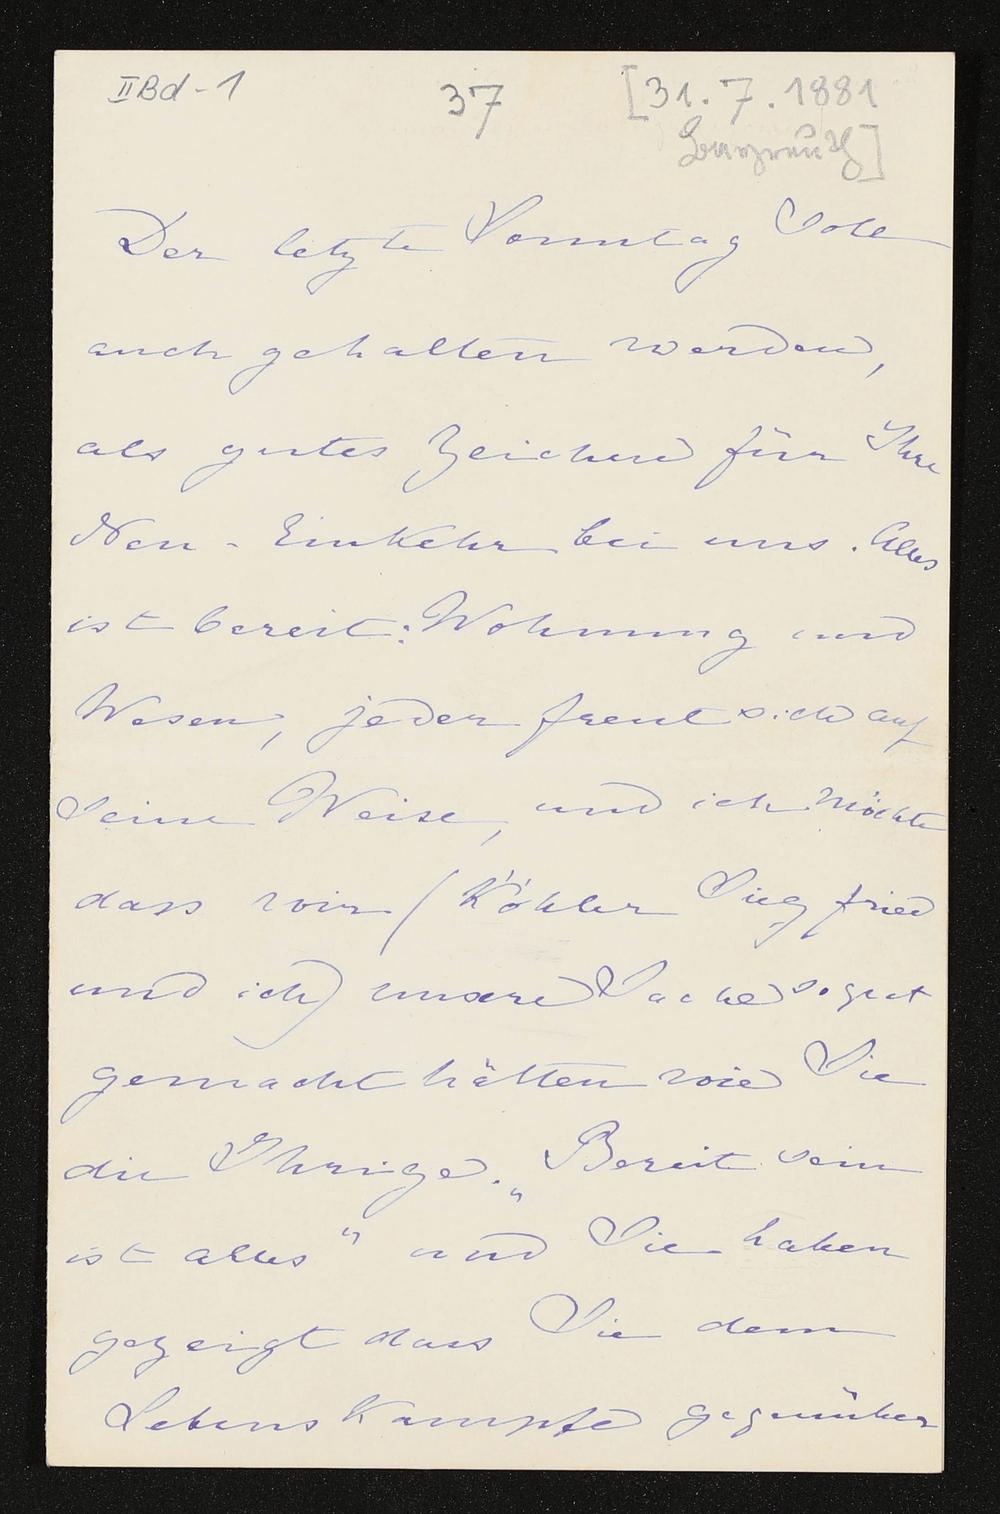 II Bd - 1
37
[31.7.1881
Bayreuth]
Der letzte Sonntag soll
auch gehalten werden,
als gutes Zeichen für Ihre
Neu-Einkehr bei uns. Alles
ist bereit: Wohnung und
Wesen, jeder freut sich auf
seine Weise, und ich möchte
dass wir (Köhler Siegfried
und ich) unsere Sache so gut
gemacht hätten wie Sie
die Ihrige. „Bereit sein
ist alles" und Sie haben
gezeigt dass Sie dem
Lebens Kampfe gegenüber